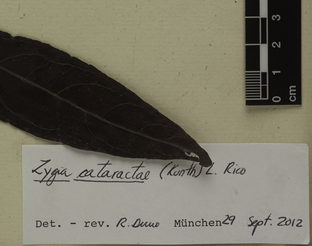 0 1 2 3
cm
Zygia cataractae (Kunth) L. Rico
Det. - rev. R. Duno München 29 Sept. 2012